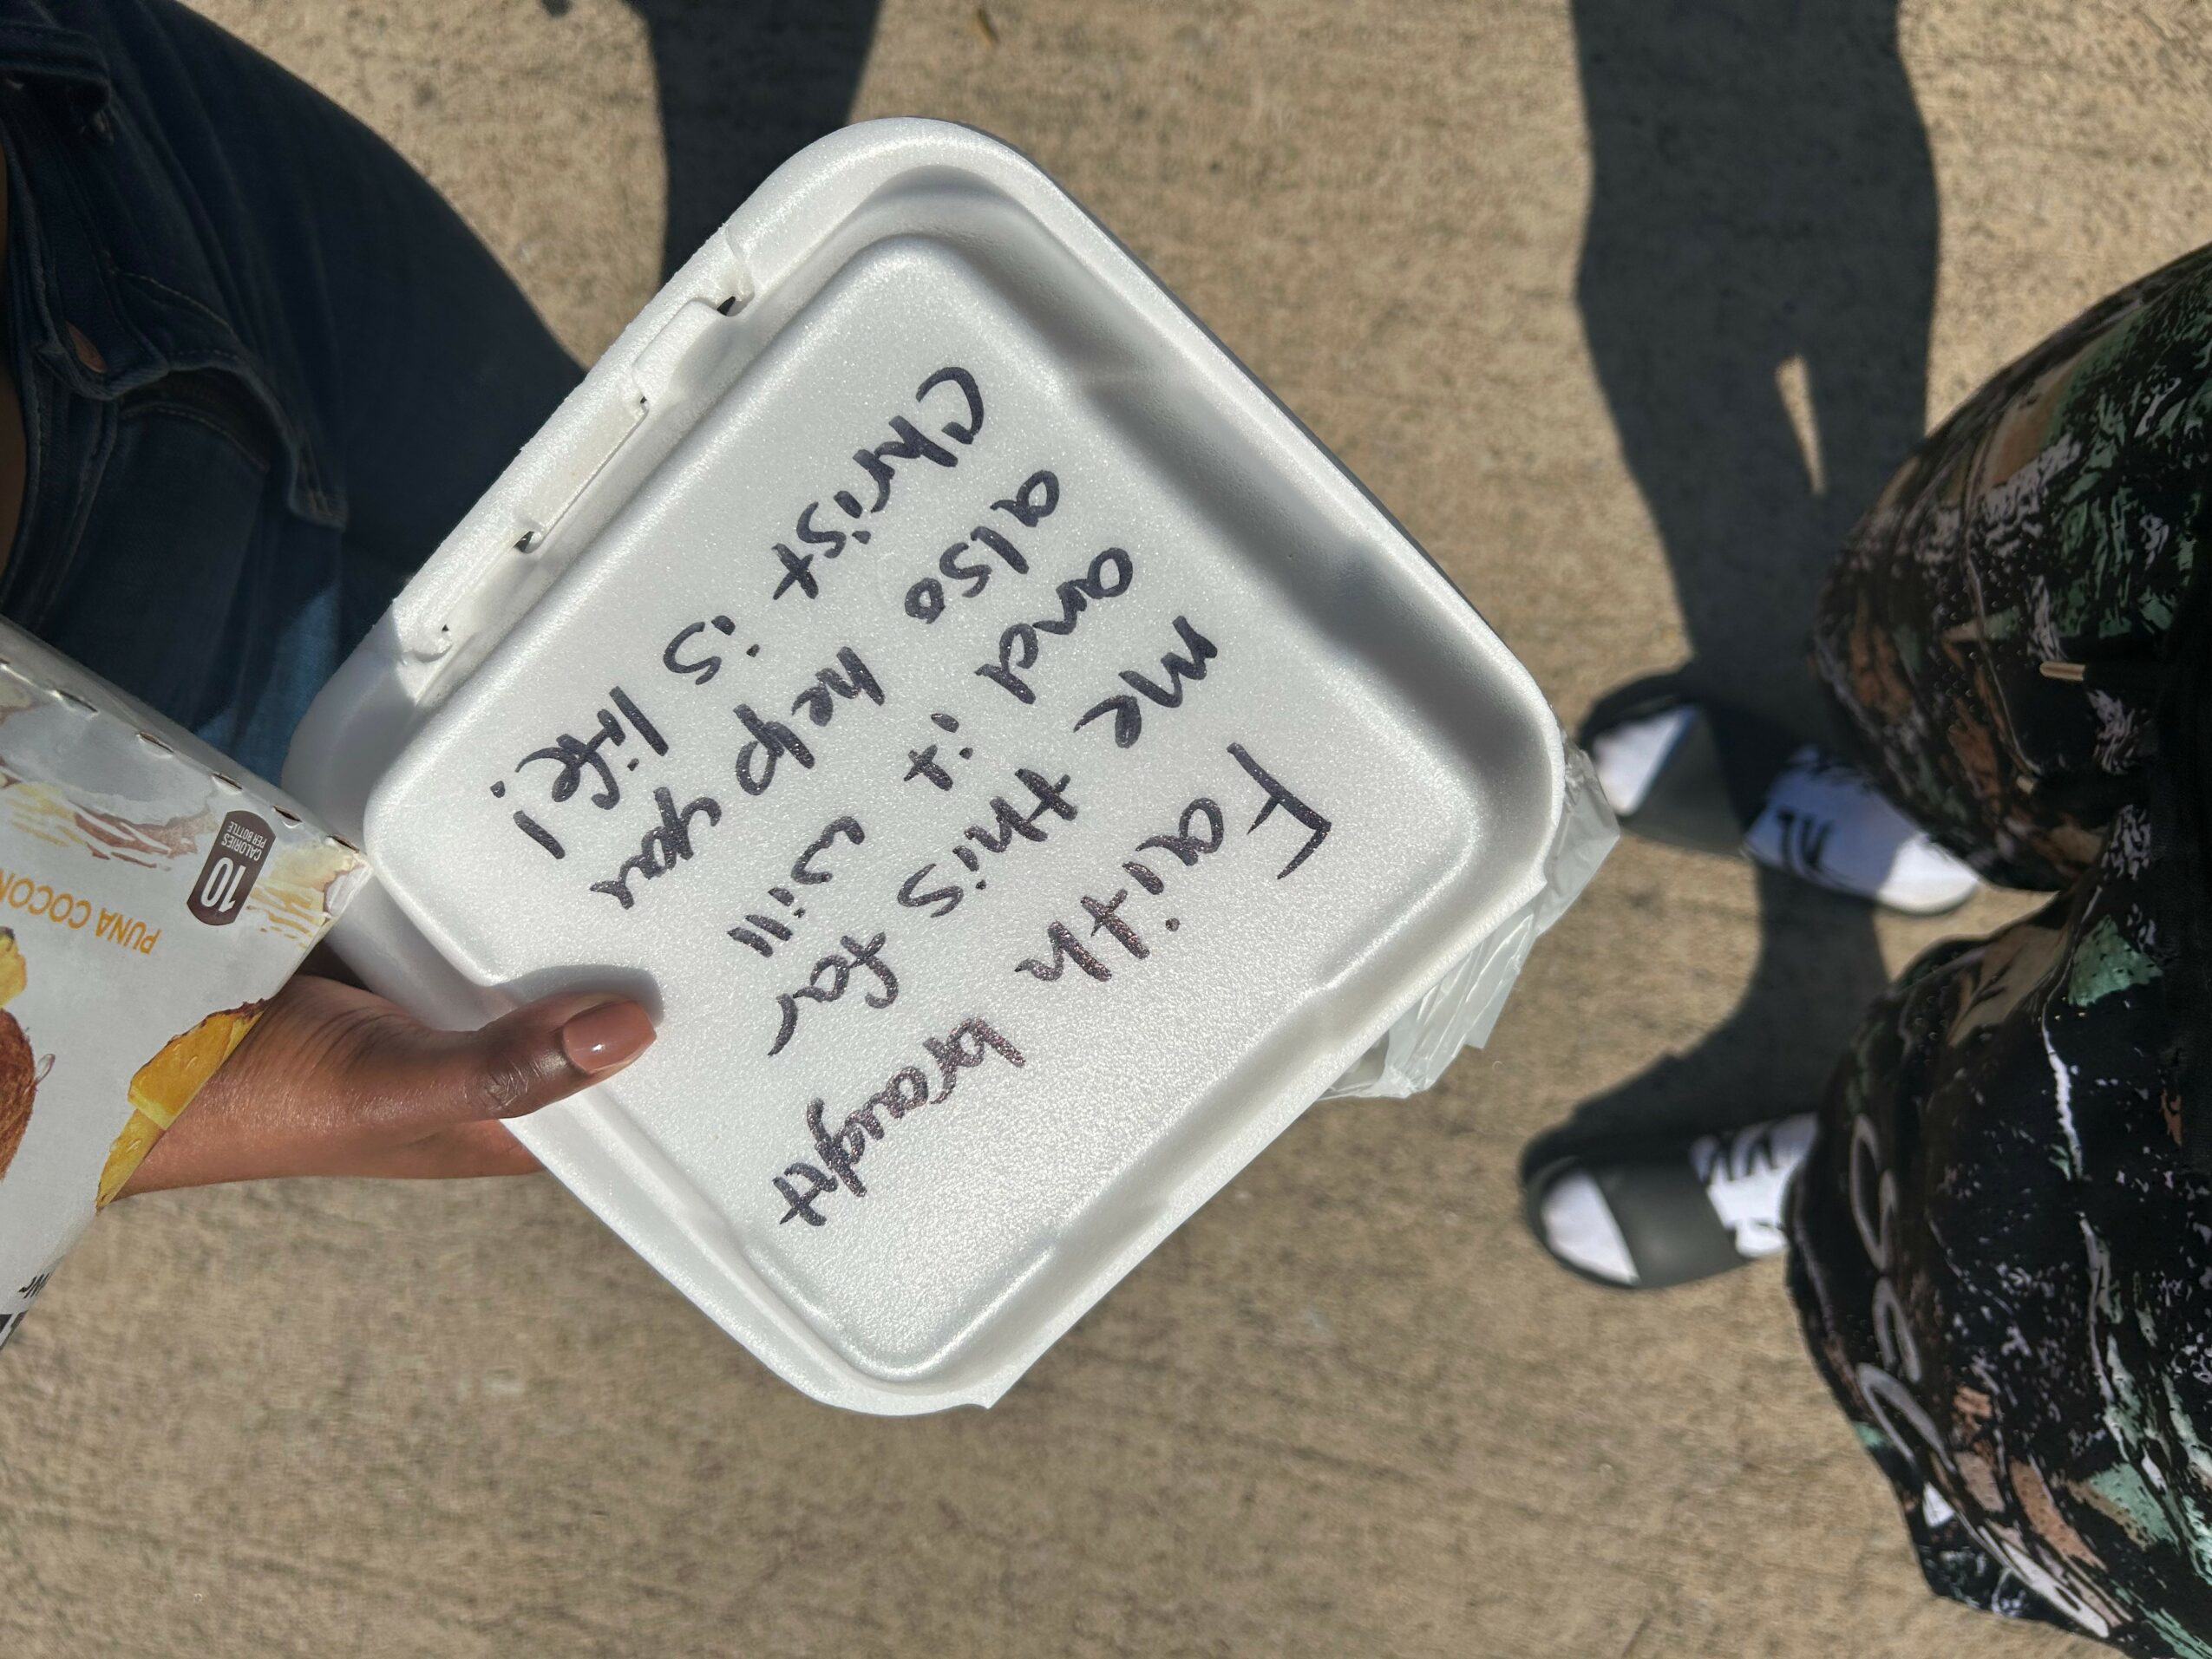 Faith brought
me this far
and it will
also help you
Christ is life!
10
CALORIES
PER BOTTLE
PUNA COCON